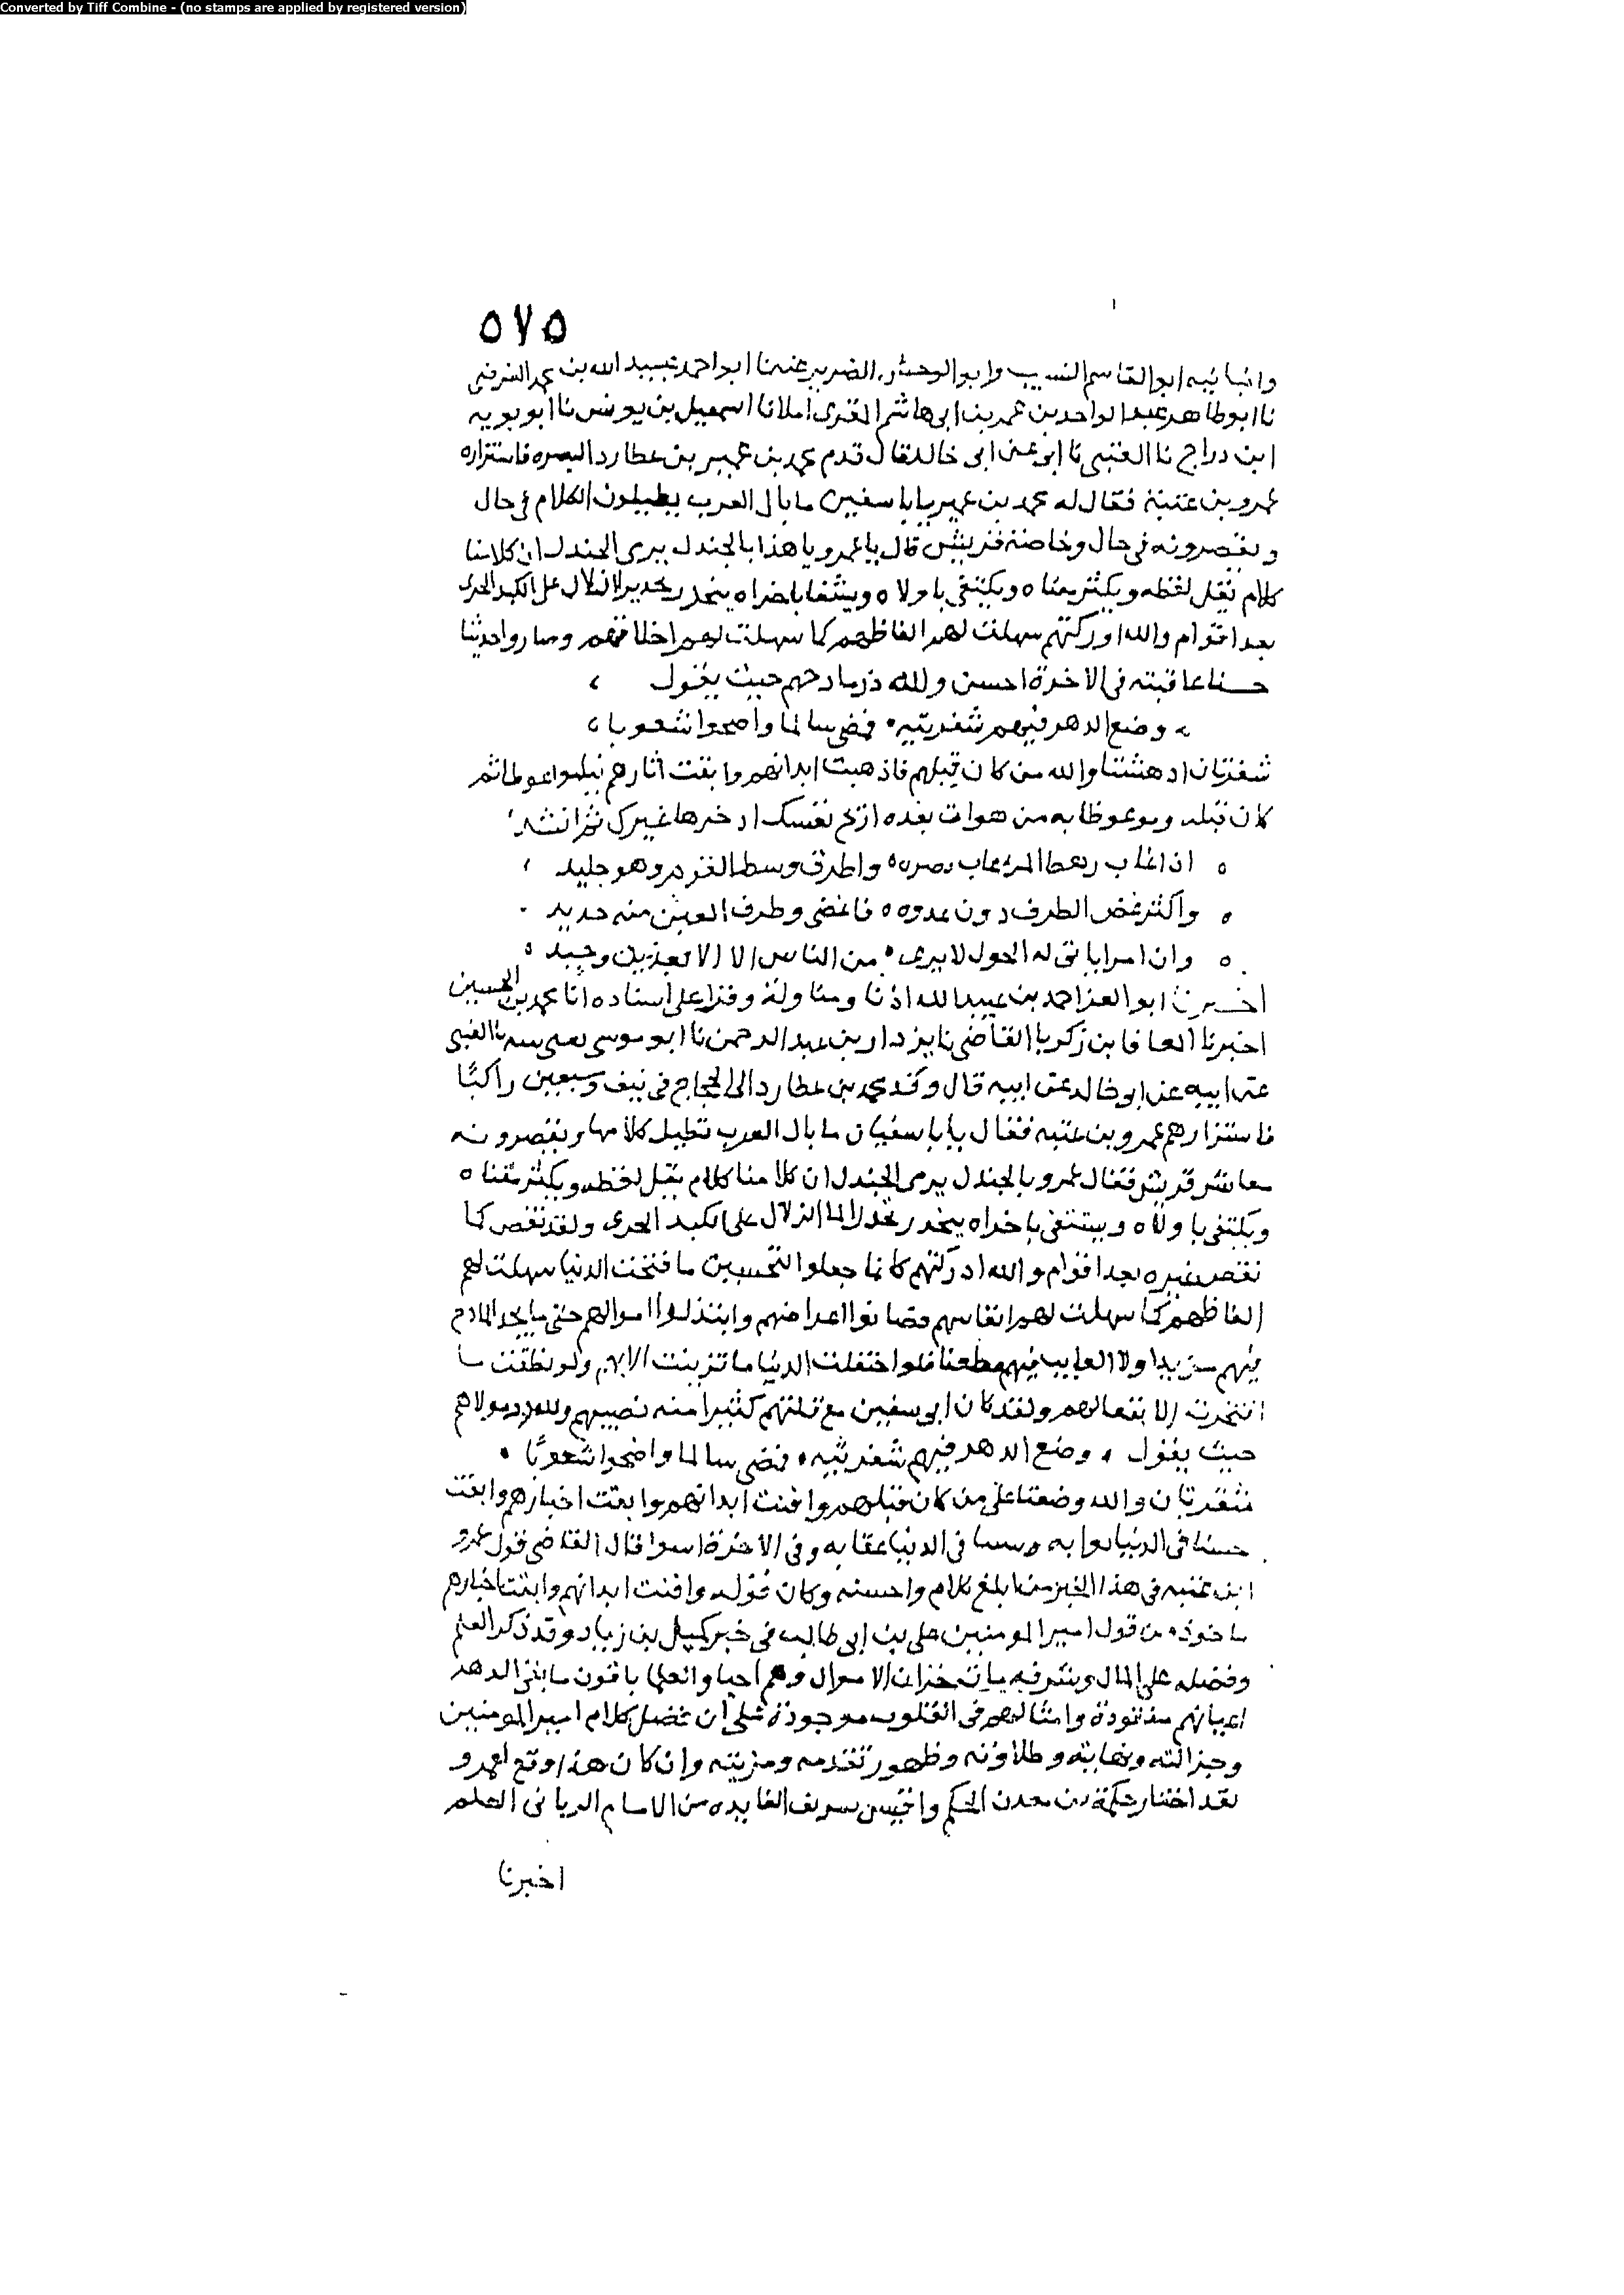 Converted by Tiff Combine - (no stamps are applied by registered version)
٥٧٥
وانبا نيه ابوا القاسم النسيب وابو الوحش الضرير عنه نا ابو احمد عبيد الله بن محمد الفرضي
نا ابو طاهر عبد الواحد بن عمر بن ابى هاشم المقرى املانا اسمعيل بن يونس نا ابو بويه
ابن دراج نا العتبى نا ابى عن ابى خالد قال قدم محمد بن عمير بن عطارد البصره فاستزاره
عمرو بن عتبة فقال له محمد بن عمير يابا سفين ما بال العرب يطيلون الكلام فى حال
ويقصرونه فى حال وخاصة قريش قال يا عمرو يا هذا بالجندل يرى الجندل ان كلامنا
كلام يقل لفظه ويكثر معناه ويكتفى باولاه ويشفا باخراه ينحدر تحدير الزلال على الكبد الحرى
بعد اقوام والله ادركتهم سهلت لهم الفاظهم كما سهلت لهم اخلاقهم وصارواحديثا
حسنا عاقبته فى الاخرة احسن ولله در مادحهم حيث يقول
وضع الدهر فيهم شفرتيه فمضى سالما واصحوا شعوبا
شفرتان ادهشتنا والله من كان قبلهم فاذهبت ابدانهم وابقت اثارهم
كان قبله وموعوظا به من هوات بعده ارتج نفسك ادخرها غيرك ثم انشد
اذا غاب رهط المرء غاب نصره واطرق وسط القوم وهو جليد
واكثر غض الطرف دون عدوه فاغضى وطرف العين منه حديد
وان امرا ياتى له الحول لا يرى من الناس الا الا بعدين وحيد
اخبرنا ابو العز احمد بن عبيد الله اذنا ومناولة وقرا على اسناده انا محمد بن الحسين
اخبرنا المعافا بن زكريا القاضى نا يزداد بن عبد الرحمن نا ابو موسى يعنى سه نا العتبى
عن ابيه عن ابو خالد عن ابيه قال وفد محمد بن عطارد الى الحجاج فى نيف وسبعين راكبا
فاستزارهم عمرو بن عتبه فقال يابا سفيان ما بال العرب تطيل كلامها ويقصرونه
معاشر قريش فقال عمرو بالجندل يرمى الجندل ان كلامنا كلام يقل لفظه ويكثر معناه
ويكتفى باولاه ويشتفى باخراه ينحدر تحدر الما الزلال على الكبد الحرى ولقد نقص كما
نقص غيره بعد اقوام والله ادركتهم كانما جعلوا لتحسين ما قبحت الدنيا سهلت لهم
الفاظهم كما سهلت لهم انفاسهم فصانوا اعراضهم وابتذلوا اموالهم حتى ما يجد المادح
فيهم مزيدا ولا العايب فيهم مطعنا فلو احتفلت الدنيا ما تزينت الا بهم ولو نطقت ما
افتخرت الا بفعالهم ولقد كان ابى سفين مع قلتهم كثيرا منه نصيبهم ولله در مولاهم
حيث يقول وضع الدهر فيهم شفرتيه فمضى سالما واضحوا شعوبا
شفرتان والله وضعتا على من كان قبلهم وافنت ابدانهم وابقت اخبارهم وابقت
حسنا فى الدنيا ثوابه وسيا فى الدنيا عقابه وفى الاخرة اسوا قال القاضى قول عمرو
ابن عتبه فى هذا الخبر من ابلغ كلام واحسنه وكان قوله وافنت ابدانهم وابقت اخبارهم
ماخوذه من قول امير المومنين على بن ابى طالب فى خبر كميل بن زياد وقد ذكر العلم
وفضله على المال وشرفه مات خزان الاموال وهم احيا والعلما باقون ما بقى الدهر
اعيانهم مفقودة وامثالهم فى القلوب موجودة على ان فضل كلام امير المومنين
وجزالته ونهايته وطلاوته وظهور تقدمه ومزيته وان كان هذا وقع لعمرو
فقد اختار حكمة من معدن الحكم واقتبس شريف الفايده من الامام الربانى العلم
اخبرنا